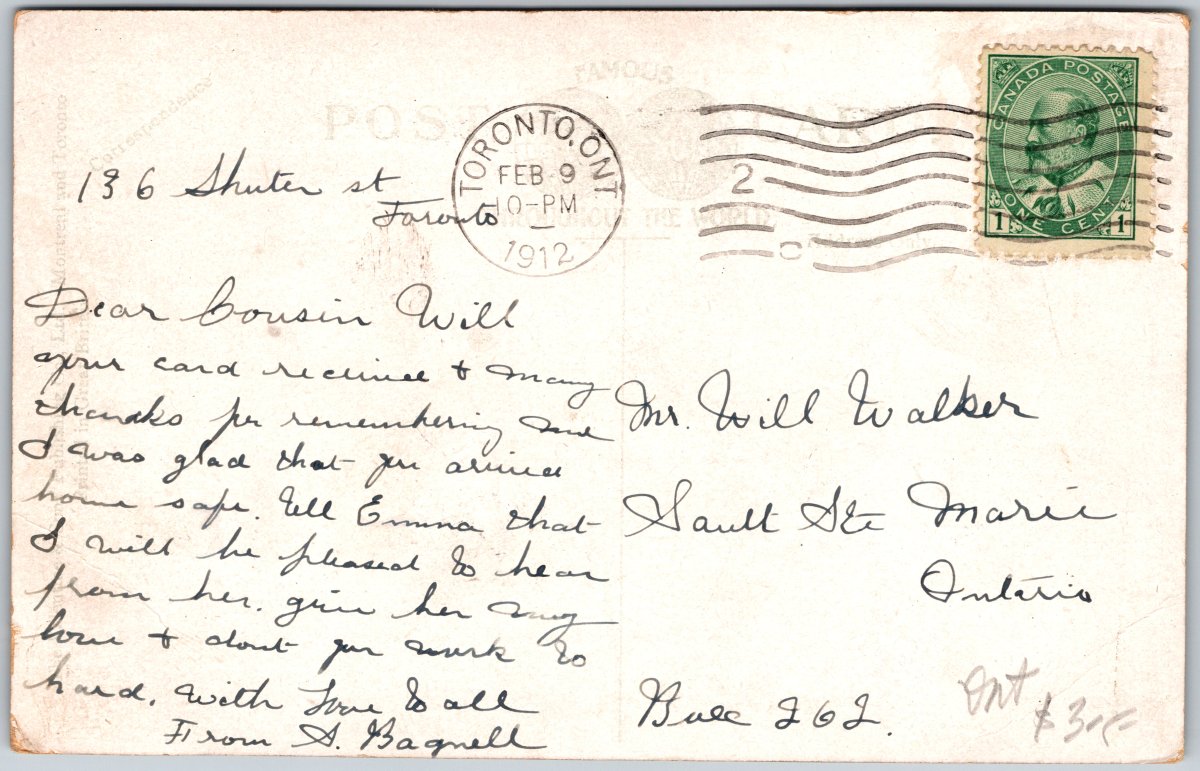 FAMOUS
POST CARD
THROUGHOUT THE WORLD
Correspondence
TORONTO, ONT
FEB 9
10-PM
1912
2
CANADA POSTAGE
1 ONE CENT 1
136 Shuter st
Toronto
Dear Cousin Will
your card received & many
thanks for remembering me
I was glad that you arrived
home safe. Tell Emma that
I will be pleased to hear
from her. give her my
love & dont you work to
hard. With Love to all
From S. Bagnell
Mr. Will Walker
Sault Ste Marie
Ontario
Box 262.
Ont
$3.00